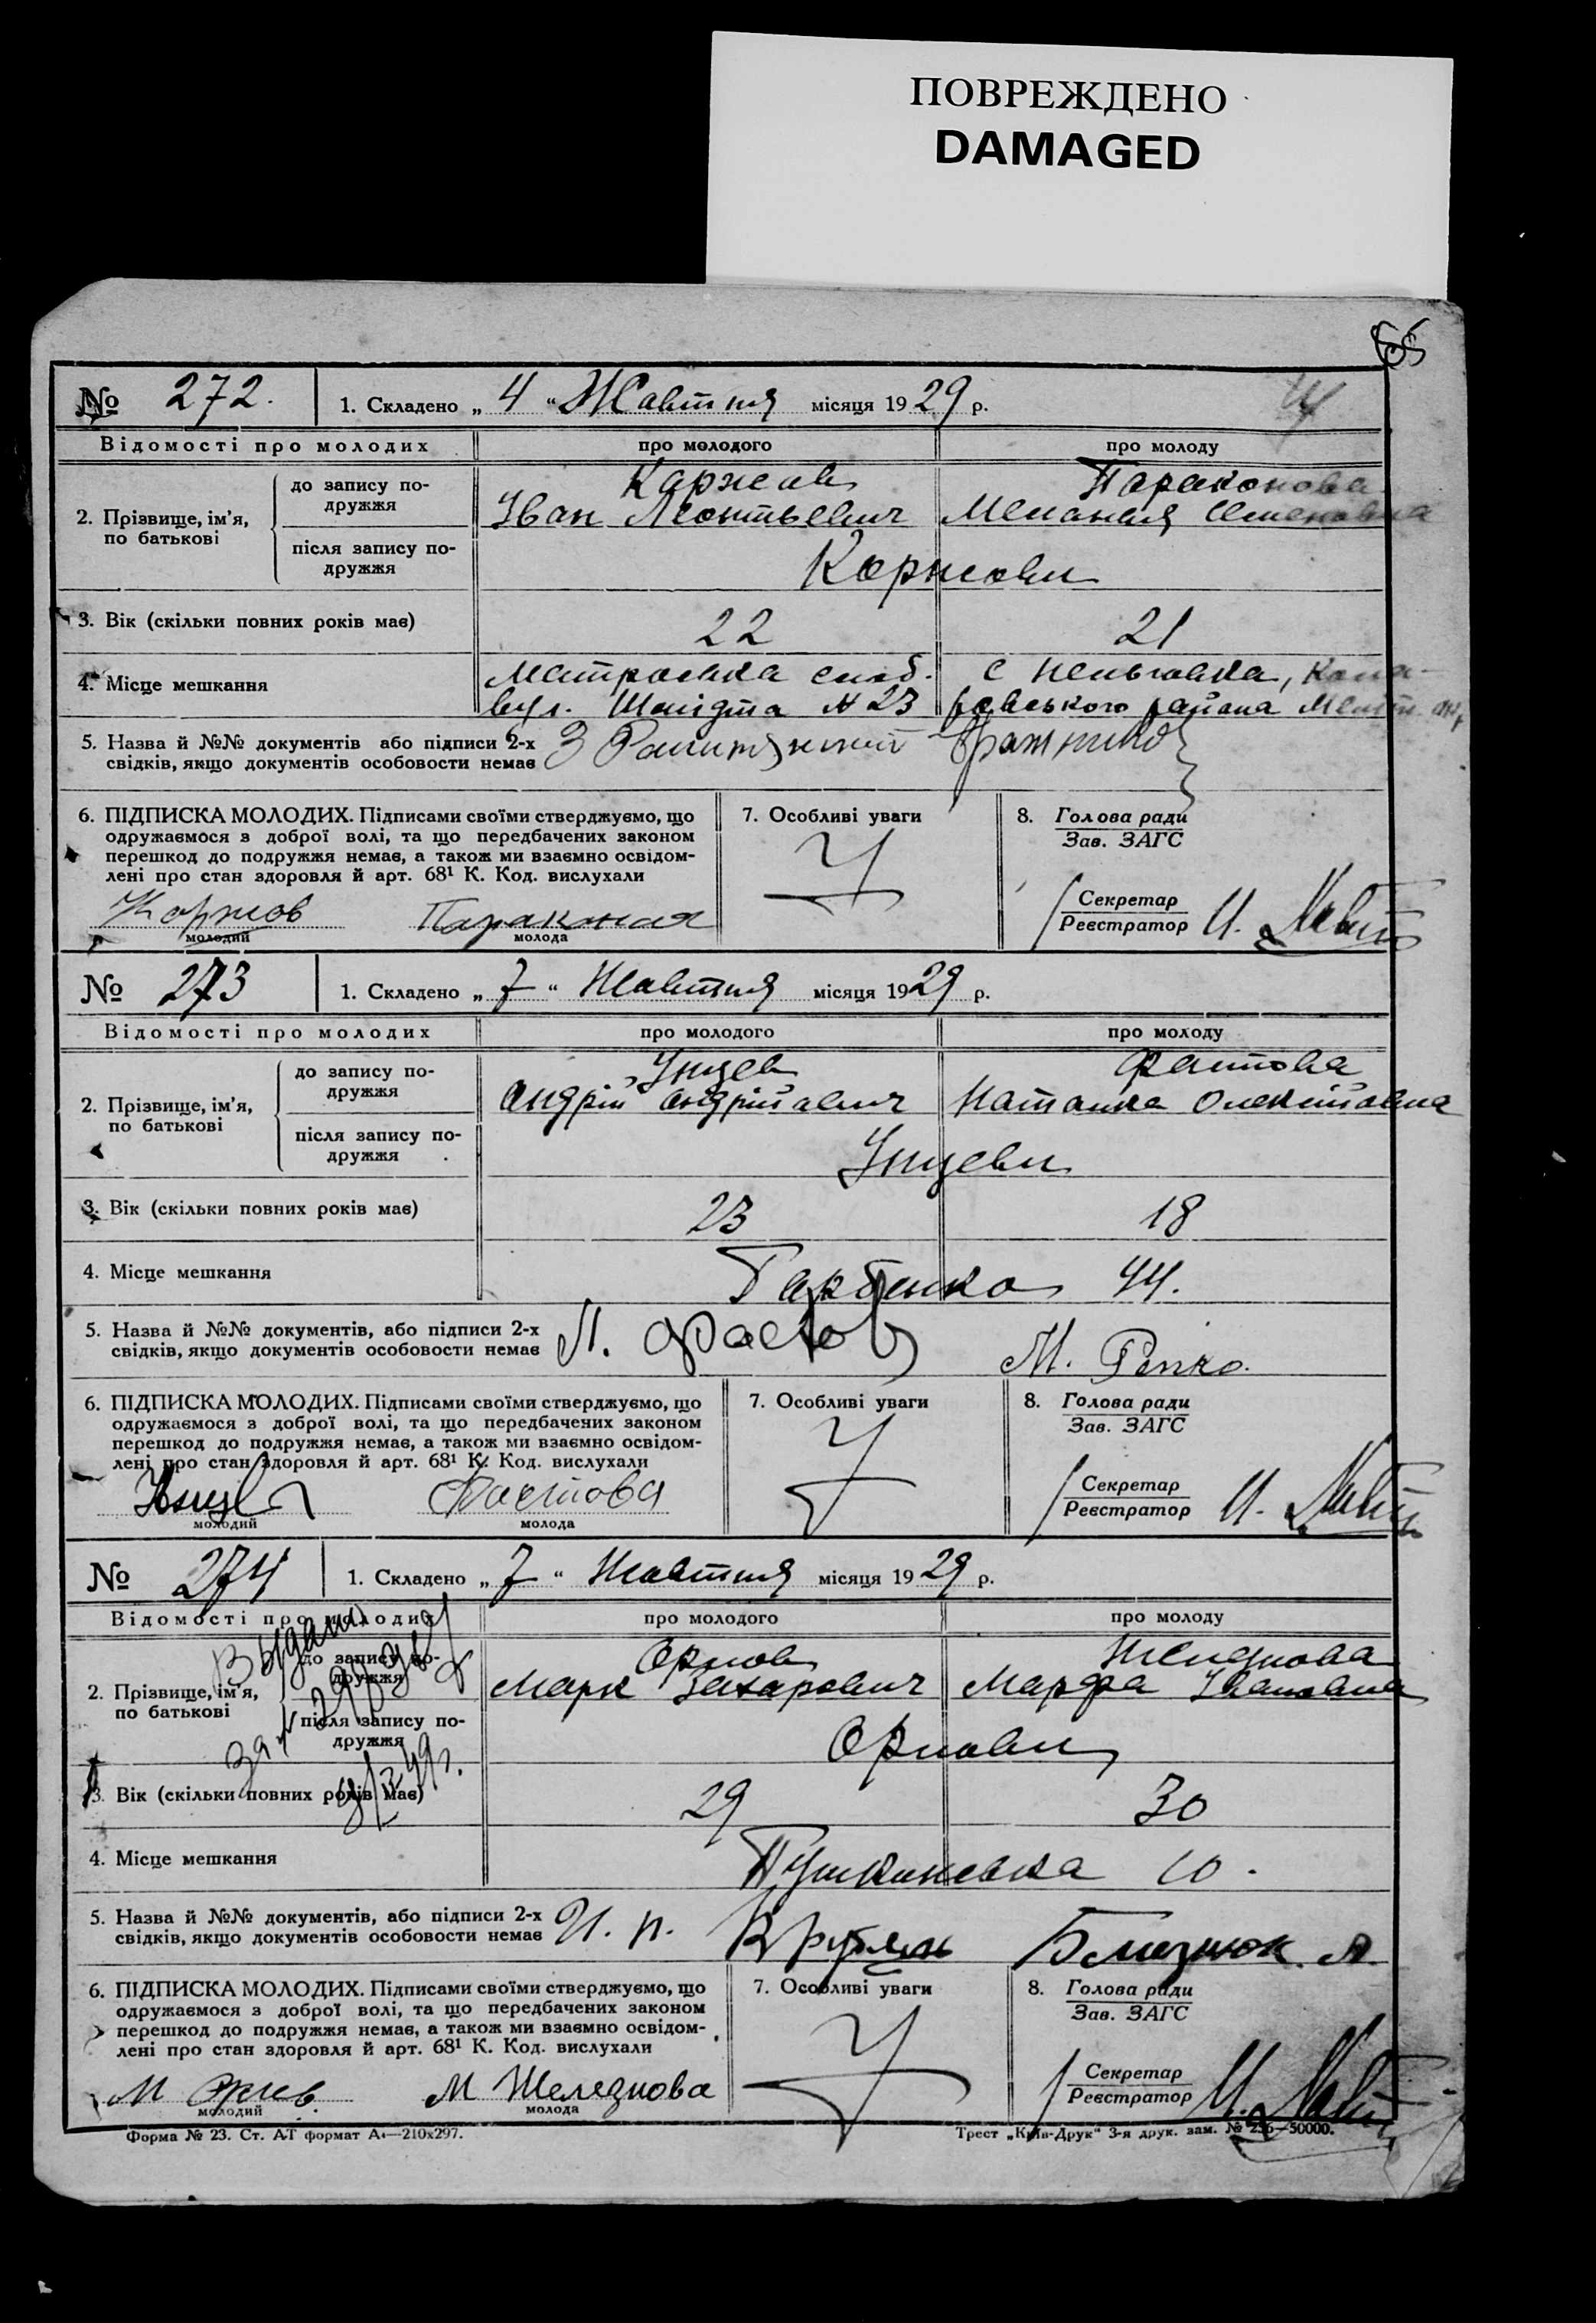 ПОВРЕЖДЕНО
DAMAGED
№ 272. 1. Складено „ 4 “ Жовтня місяця 1929 р.
Відомості про молодих про молодого про молоду
2. Прізвище, ім'я, по батькові
до запису подружжя
Коржов
Іван Леонтьевич
Параконова
Меланія Семеновна
після запису подружжя
Коржови
3. Вік (скільки повних років має) 22 21
4. Місце мешкання
вул. Шмідта № 23
району
5. Назва й №№ документів або підписи 2-х
свідків, якщо документів особовости немає
6. ПІДПИСКА МОЛОДИХ. Підписами своїми стверджуємо, що
одружаємося з доброї волі, та що передбачених законом
перешкод до подружжя немає, а також ми взаємно освідом-
лені про стан здоровля й арт. 68¹ К. Код. вислухали
Коржов
молодий молода
7. Особливі уваги
8. Голова ради
Зав. ЗАГС
Секретар
Реєстратор
№ 273 1. Складено „ 7 “ Жовтня місяця 1929 р.
Відомості про молодих про молодого про молоду
2. Прізвище, ім'я, по батькові
до запису подружжя
Андрій Андрійович
Фастова
Наталка Олексіївна
після запису подружжя
3. Вік (скільки повних років має) 23 18
4. Місце мешкання 44.
5. Назва й №№ документів, або підписи 2-х
свідків, якщо документів особовости немає
Л. Фастов М. Репко.
6. ПІДПИСКА МОЛОДИХ. Підписами своїми стверджуємо, що
одружаємося з доброї волі, та що передбачених законом
перешкод до подружжя немає, а також ми взаємно освідом-
лені про стан здоровля й арт. 68¹ К. Код. вислухали
Фастова
молодий молода
7. Особливі уваги
8. Голова ради
Зав. ЗАГС
Секретар
Реєстратор
№ 274 1. Складено „ 7 “ Жовтня місяця 1929 р.
Відомості про молодих про молодого про молоду
2. Прізвище, ім'я, по батькові
до запису подружжя
Орлов
Марк Захарович
Желєзнова
Марфа Івановна
після запису подружжя
Орлови
3. Вік (скільки повних років має) 29 30
4. Місце мешкання 10.
5. Назва й №№ документів, або підписи 2-х
свідків, якщо документів особовости немає
Близнюк А.
6. ПІДПИСКА МОЛОДИХ. Підписами своїми стверджуємо, що
одружаємося з доброї волі, та що передбачених законом
перешкод до подружжя немає, а також ми взаємно освідом-
лені про стан здоровля й арт. 68¹ К. Код. вислухали
М Орлов М Железнова
молодий молода
7. Особливі уваги
8. Голова ради
Зав. ЗАГС
Секретар
Реєстратор
Форма № 23. Ст. АТ формат А₄—210х297. Трест „Київ-Друк“ 3-я друк. зам. № 256—50000.